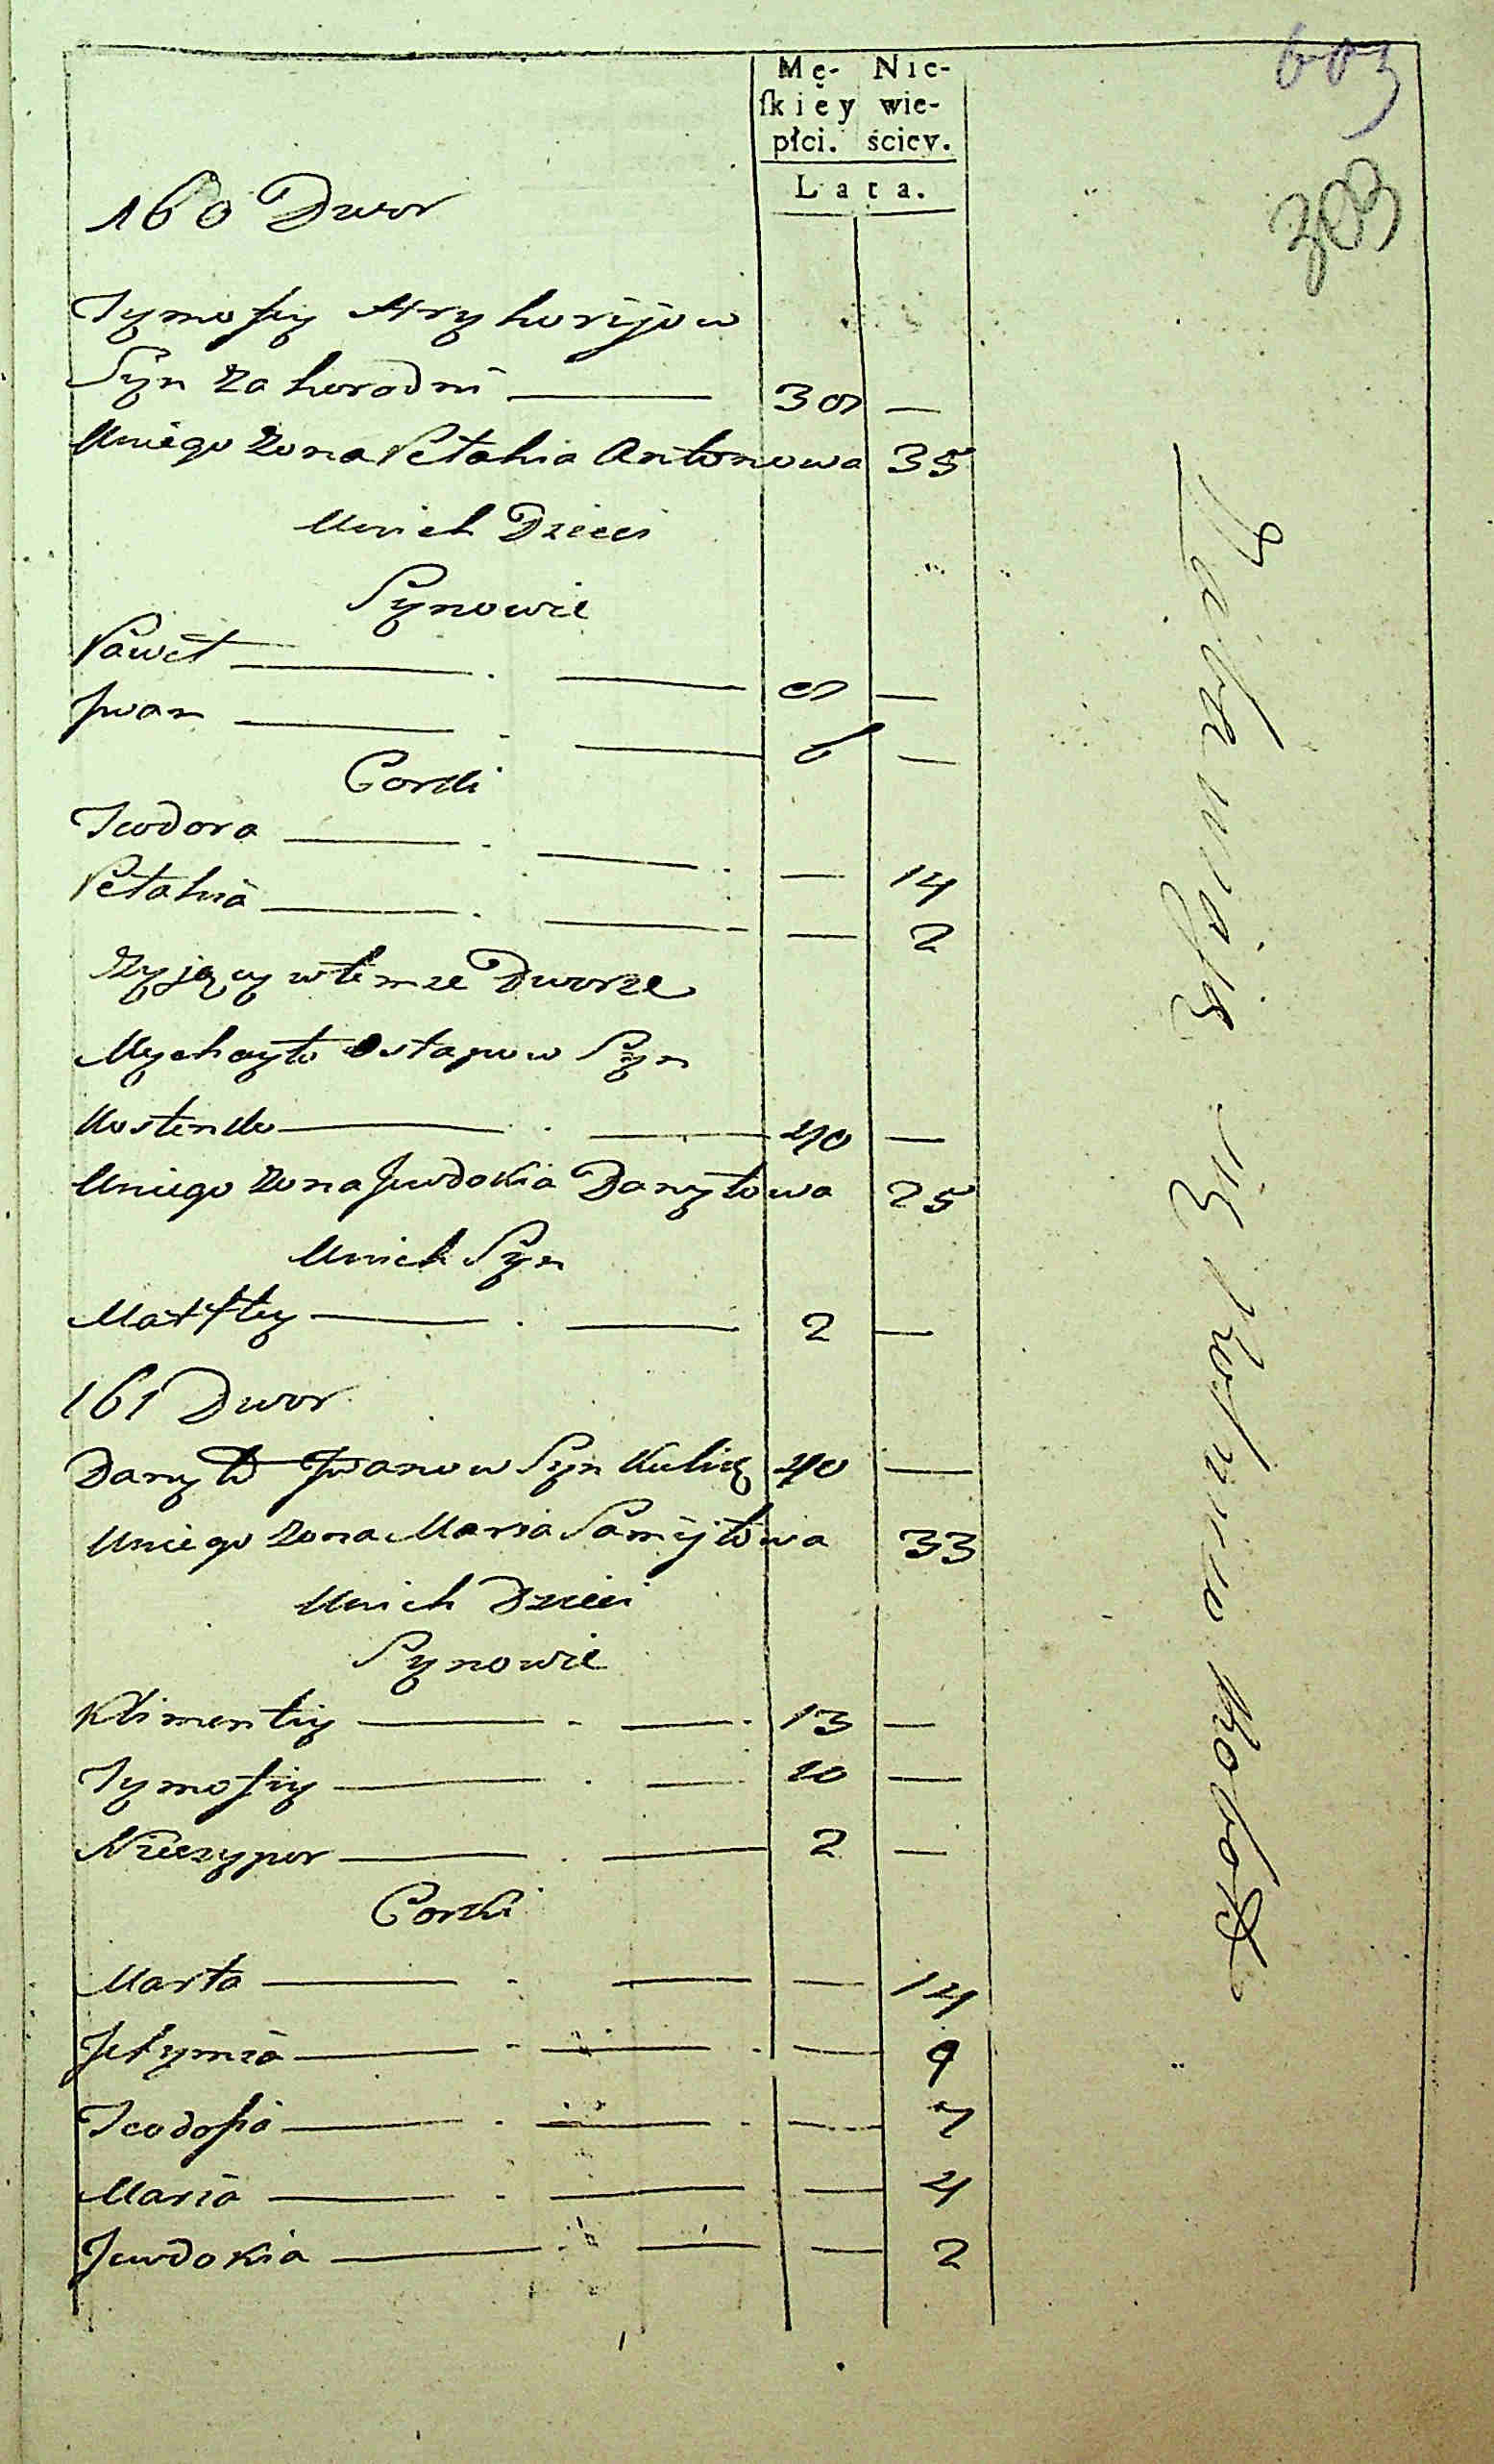 603
303
Mę- Nie-
ſkiey wie-
płci. ściey.
Lata.
160 Dwor
Tymofiy Hryhoryjow
Syn Zahorodni — 38 —
Uniego Zona Petahia Antonowa 35
Unich Dzieci
Synowie
Paweł — 8 —
Jwan — 6 —
Corki
Teodora — — 14
Petahia — — 2
Zyjący wtemze Dworze
Mychayło Ostapow Syn
Kostenko — 40 —
Uniego Zona Jewdokia Daryłowa 25
Unich Syn
Mattfey — 2 —
161 Dwor
Daryło Jwanow Syn Kulicz 40 —
Uniego Zona Maria Samyłowa 33
Unich Dzieci
Synowie
Klimentiy — 13 —
Tymofiy — 10 —
Niczypor — 2 —
Corki
Marta — — 14
Jefymia — — 9
Teodosia — — 7
Maria — — 4
Jewdokia — — 2